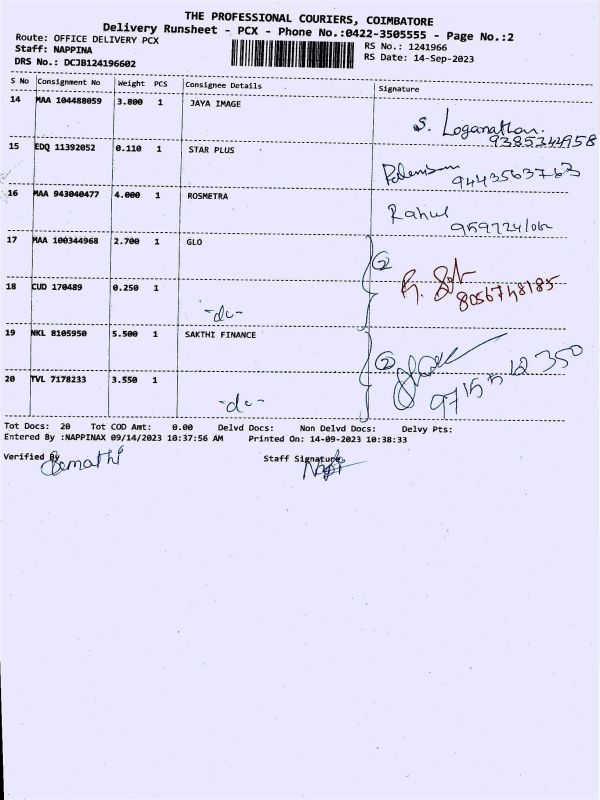 THE PROFESSIONAL COURIERS, COIMBATORE
Delivery Runsheet - PCX - Phone No.:0422-3505555 - Page No.:2
Route: OFFICE DELIVERY PCX
RS No.: 1241966
Staff: NAPPINA
RS Date: 14-Sep-2023
DRS No.: DCJB124196602
S No Consignment No Weight PCS Consignee Details Signature
14 MAA 104488059 3.800 1 JAYA IMAGE
S. Loganathan.
9385344958
15 EDQ 11392052 0.110 1 STAR PLUS
9443563763
16 MAA 943040477 4.000 1 ROSMETRA
Rahul
17 MAA 100344968 2.700 1 GLO
2
18 CUD 170489 0.250 1
8056748185
-do-
19 NKL 8105950 5.500 1 SAKTHI FINANCE
2
20 TVL 7178233 3.550 1
97155 12350
-do-
Tot Docs: 20 Tot COD Amt: 0.00 Delvd Docs: Non Delvd Docs: Delvy Pts:
Entered By :NAPPINAX 09/14/2023 10:37:56 AM Printed On: 14-09-2023 10:38:33
Verified By
Staff Signature